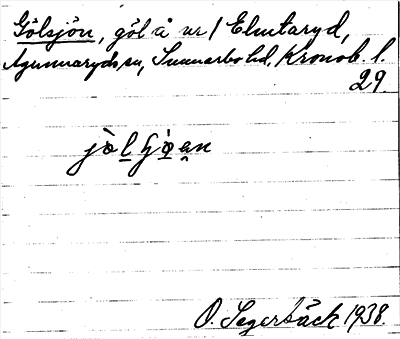 Gölsjön, göl å nr 1 Elmtaryd,
Agunnaryds sn, Sunnerbo hd, Kronob. l.
29.
jö̀lhjø̣an
O. Segerbäck 1938.